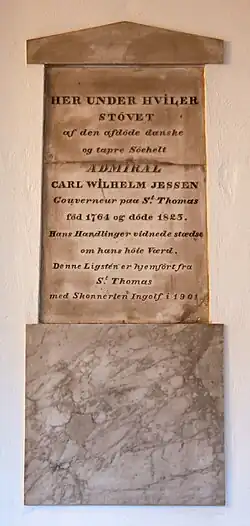 HER UNDER HVILER
STÖVET
af den afdöde danske
og tapre Söehelt
ADMIRAL
CARL WILHELM JESSEN
Gouverneur paa St Thomas
föd 1764 og döde 1823.
Hans Handlinger vidnede stædse
om hans höie Værd.
Denne Ligsten er hjemfört fra
St Thomas
med Skonnerten Ingolf i 1901